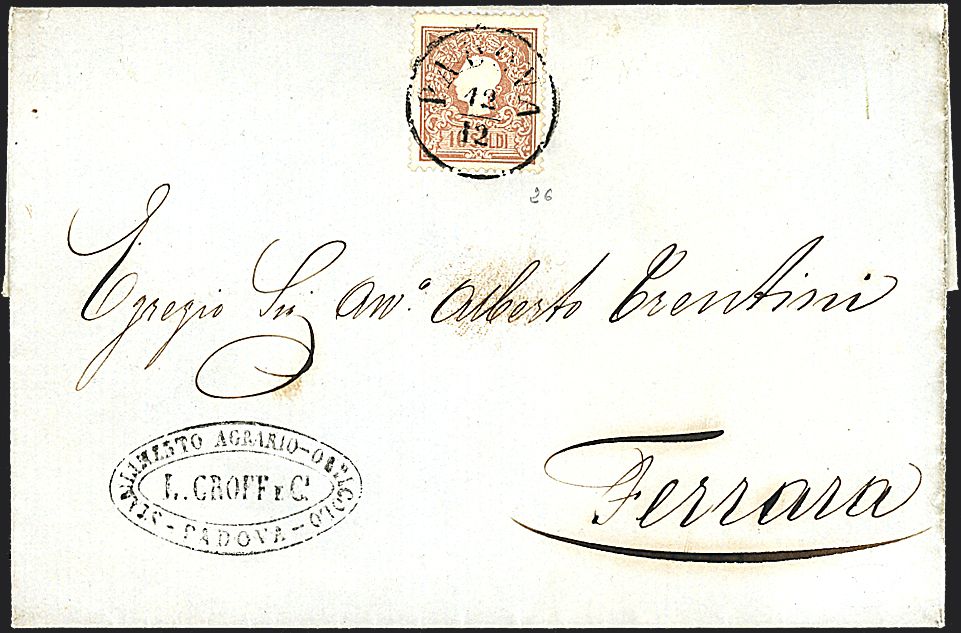 PADOVA
12
12
10 SOLDI
26
Egregio Sig Avvº. Alberto Trentini
STABILIMENTO AGRARIO-ORTICOLO
L. GROFF E C.
- PADOVA -
Ferrara